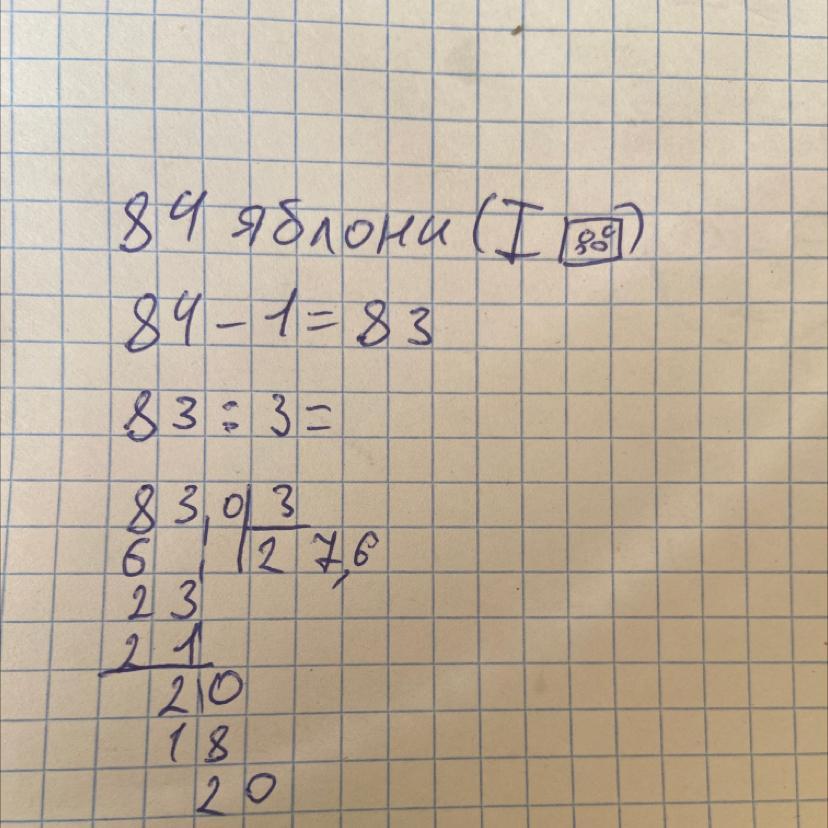 84 яблони (I 88)
84 - 1 = 83
83 : 3 =
83,0 3
6 27,6
23
21
20
18
20